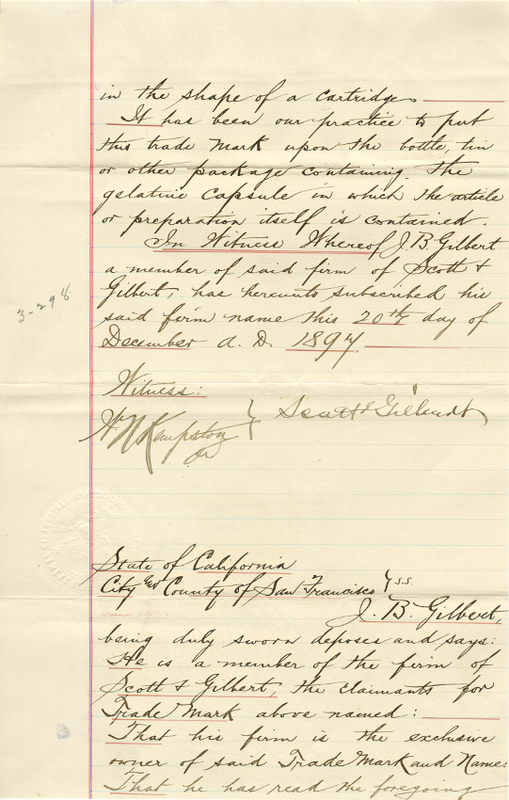 in the shape of a cartridge.
It has been our practice to put
this trade mark upon the bottle, tin
or other package containing the
gelatine capsule in which the article
or preparation itself is contained.
In Witness Whereof J. B. Gilbert
a member of said firm of Scott &
Gilbert, has hereunto subscribed his
said firm name this 20th day of
December A. D. 1894.
3-298
Witness:
Wm N Kempston Jr } Scott & Gilbert
State of California
City and County of San Francisco } s.s.
J. B. Gilbert,
being duly sworn deposes and says:
He is a member of the firm of
Scott & Gilbert, the claimants for
Trade Mark above named:
That his firm is the exclusive
owner of said Trade Mark and Name:
That he has read the foregoing